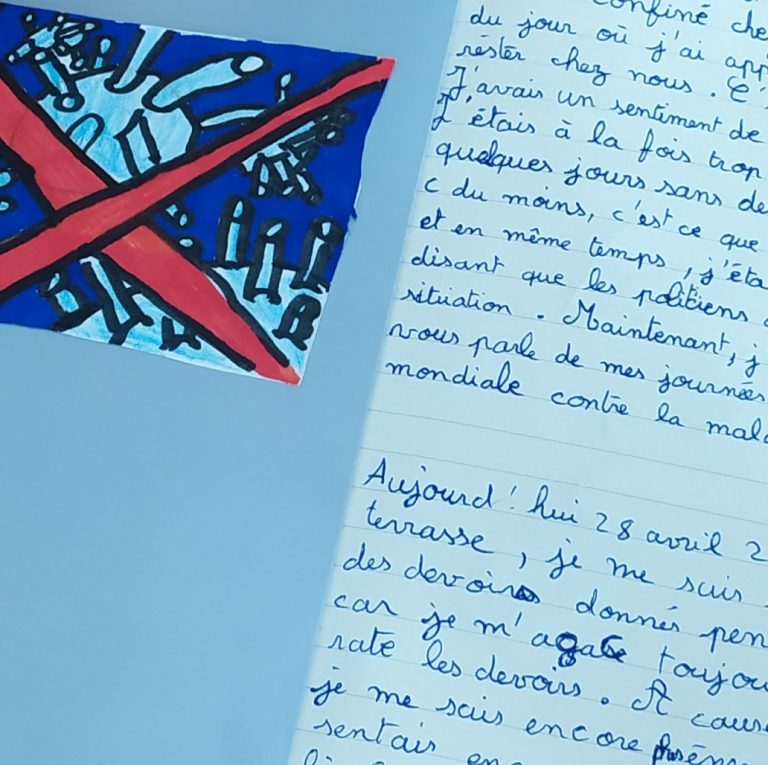 confiné che
du jour où j'ai app
rester chez nous. C'
J'avais un sentiment de
J'étais à la fois trop
quelques jours sans de
c du moins, c'est ce que
et en même temps, j'éta
disant que les politiens
situation. Maintenant, j'
vous parle de mes journées
mondiale contre la mala
Aujourd'hui 28 avril 2
terrasse, je me suis
des devoirs donnés pen
car je m'agace toujou
rate les devoirs. A cause
je me suis encore
sentais en